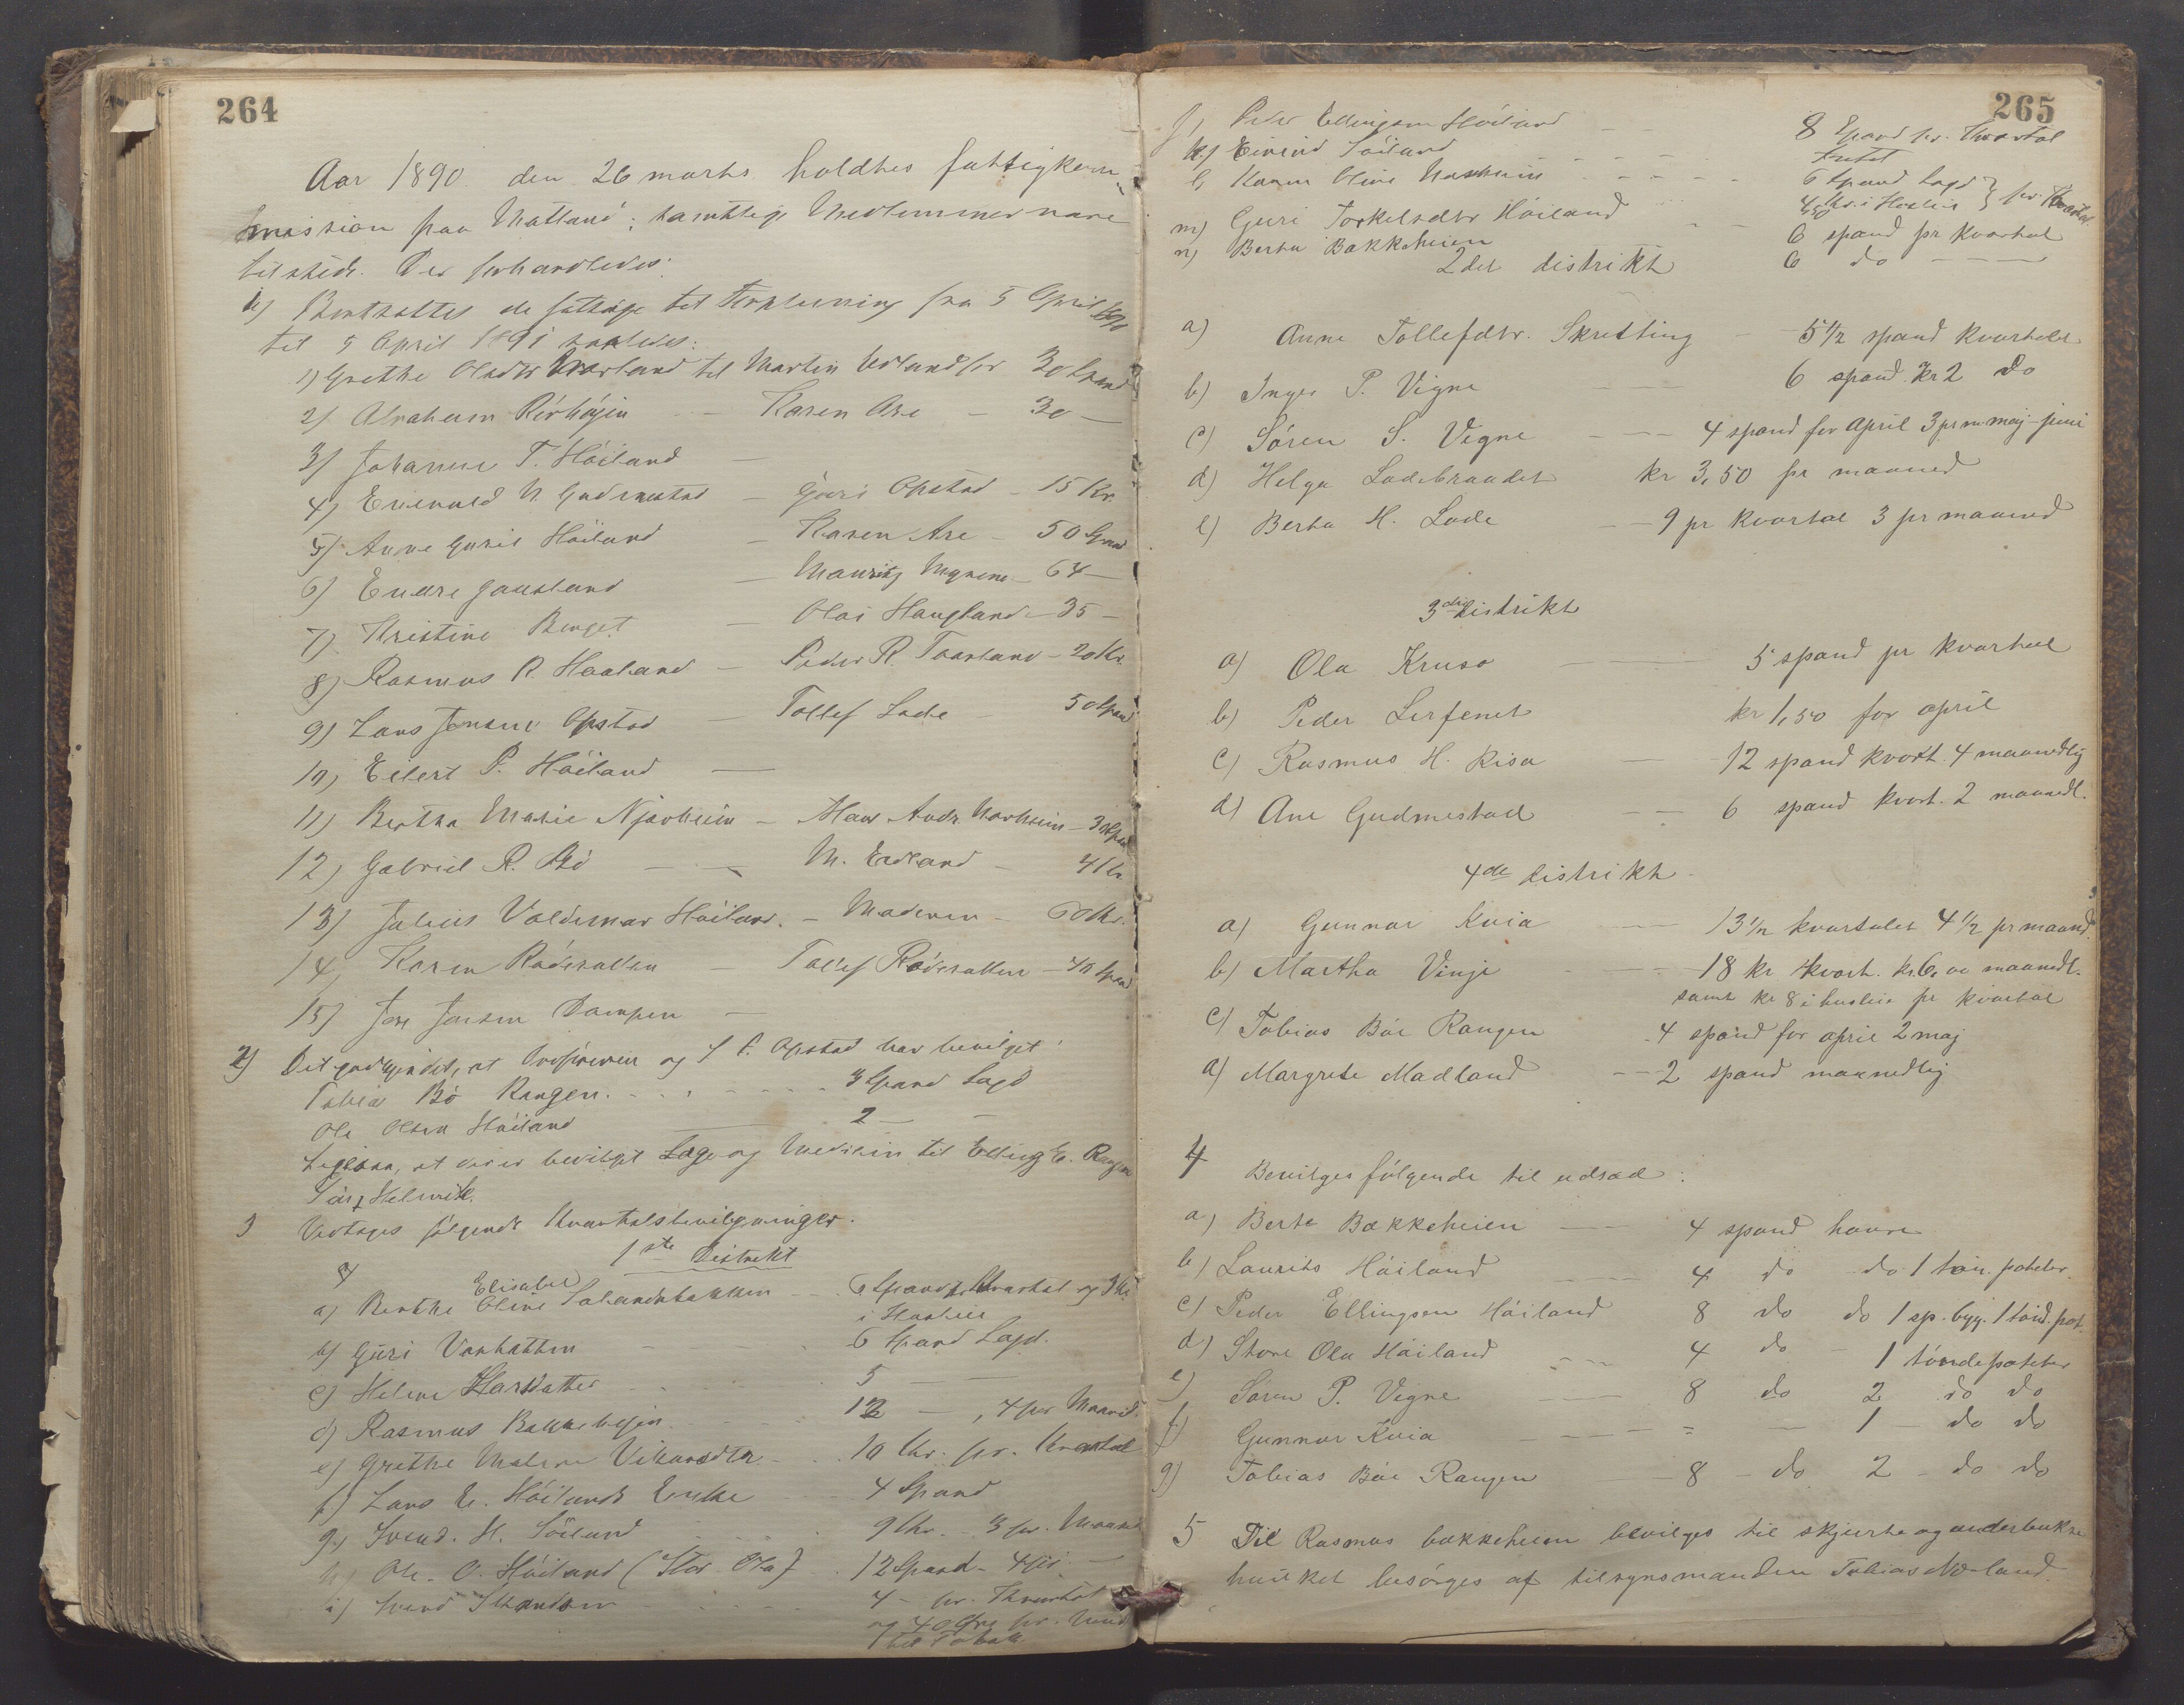 264
Aar 1890 den 26 marts holdtes fattigkom¬
mission paa Matland; samtlige Medlemmer vare
tilstede. Der forhandledes:
1) Bortsattes de fattige til Forpleining fra 5 April 1890
til 5 April 1891 saaledes:
1) Grethe Olsdtr Aarland til Martin Udland for 30 Spand
2) Abraham Rörhöjen — Karen Are — 30 —
3) Johanne T. Höiland —
4) Enevald N Gudmestad — Guri Opstad — 15 Kr.
5) Anne Guril Höiland — Karen Are — 50 Spand
6) Endre Gausland — Mauritz Myrene — 64 —
7) Kristine Berget — Olai Haugland — 35 —
8) Rasmus R. Haaland — Peder R. Taarland — 20 Kr.
9) Lars Jonsen Opstad — Tollef Lode — 50 Spand
10) Eilert P. Höiland —
11) Bertha Marie Njærheim — Hans Andr. Nærheim — 30 Spand
12) Gabriel R. Bö — — M. Erdland — 41 kr
13) Julius Valdemar Höiland. — Moderen — 60 Kr.
14) Karen Rödesatten — Tollef Rödesatten — 40 Spand
15) Jon Jonsen Dampen —
2) Det godkjendtes, at Ordföreren og J P. Opstad har bevilget:
Tobias Bö Rangen. - - - - - 3 Spand Lagd
Ole Olsen Höiland — 2 — —
Ligesaa, at der er bevilget Læge og Medisin til Elling E. Rangen
3 Vedtages fölgende Kvartalsbevilgninger.
1ste Distrikt
Elisabet
a) Berthe Oline Solandsbakken - - 6 Spand pr. Kvartal og 3 Kr.
i Husleie
b) Guri Varhatten - - - 6 Spand Lagd.
c) Helene - - - 5 — —
d) Rasmus Bakkehejen - - - 12 — , 4 per Maaned.
e) Grethe Malene Vikarsdtr - - 10 Kr. pr. Kvartal
f) Lars E. Höilands Enke - - 4 Spand
g) Svend. H. Söiland - - - 9 Kr. - 3 pr. Maaned
h) Ole O. Höiland (Stor Ola) - 12 Spand - 4 pr. —
i) Svend - - - 4 - pr. Kvartal
og 40 Öre pr.
til Tobak.
265
j) Peder Ellingsen Höiland — — 8 Spand pr. Kvartal
k) Eivind Söiland - - - - Intet
l) Karen Oline Nærheim - - - - 6 Spand Lagd } pr. Kvartal
4,50 kr. i Husleie
m) Guri Torkelsdtr Höiland - - 6 spand pr kvartal
n) Berta Bakkeheien 6 do — — —
2det distrikt
a) Anne Tollefdtr. Skretting — 5 1/2 spand kvartalet
b) Inger P. Vigre — — 6 spand. Kr 2 do
c) Sören S. Vigre — — 4 spand for april 3 pr m. maj - juni
d) Helga Lodebrandet kr 3,50 pr maaned
e) Berta H. Lode — — 9 pr kvartal 3 pr maaned
3die distrikt
a) Ola Kruse — — 5 spand pr kvartal
b) Peder Lerfenet kr 1,50 for april
c) Rasmus H. Risa — 12 spand kvart. 4 maanedlig
d) Ane Gudmestad — — 6 spand kvart. 2 maanedl.
4de distrikt
a) Gunnar Kvia — — 13 1/2 kvartalet 4 1/2 pr maaned.
b) Martha Vinje - — — 18 kr kvart. kr. 6,00 maanedl.
samt kr 8 i husleie pr kvartal
c) Tobias Böe Rangen 4 spand for april 2 maj
d) Margrete Madland — — 2 spand maanedlig
4 Bevilges fölgende til udsæd:
a) Berte Bakkeheien — — 4 spand havre
b) Laurits Höiland - - - - 4 do do 1 tön. poteter
c) Peder Ellingsen Höiland 8 do do 1 sp. byg. 1 tönd. pot.
d) Store Ola Höiland - - - 4 do - 1 tönde poteter
e) Sören P. Vigre — — 8 do 2 do do
f) Gunnar Kvia — — — = — 1 — do do
g) Tobias Böe Rangen — 8 - do 2 - do do
5 Til Rasmus bakkeheien bevilges til skjorte og underbukse
hvilket besörges af tilsynsmanden Tobias Njæland